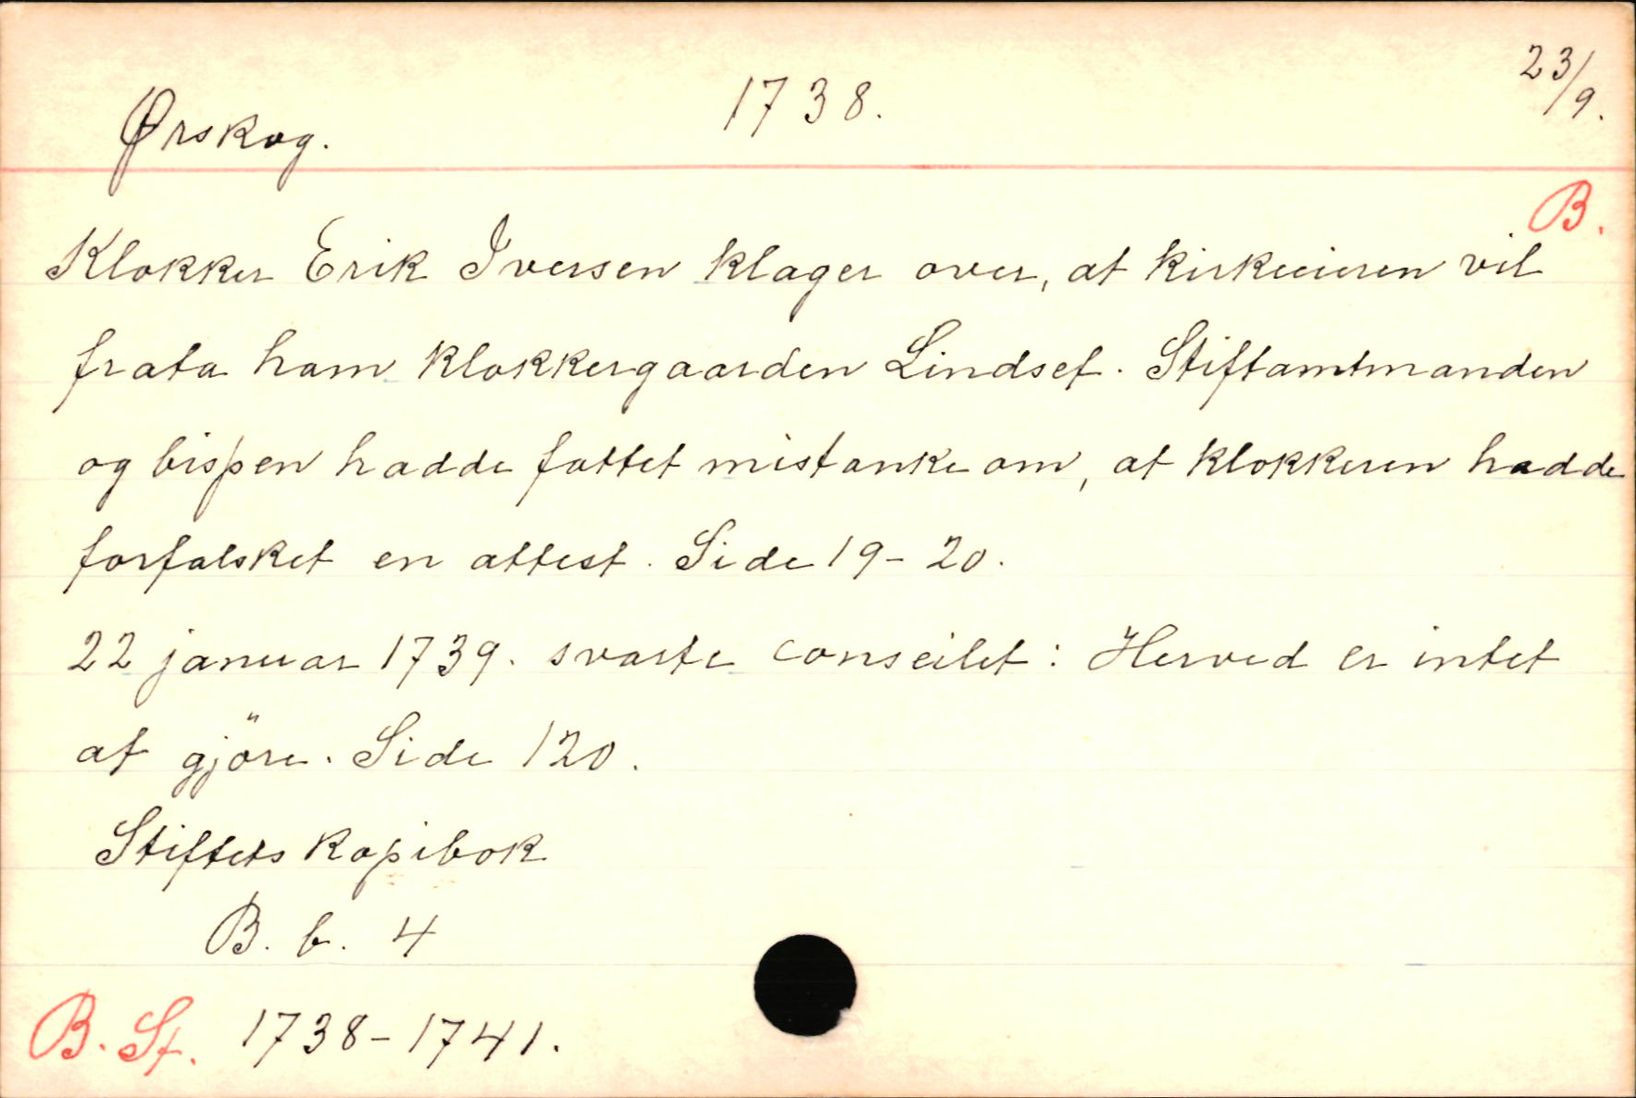 Ørskog. 1738. 23/9.
B.
Klokker Erik Iversen klager over, at kirkeeieren vil
frata ham klokkergaarden Lindset. Stiftamtmanden
og bispen hadde fattet mistanke om, at klokkeren hadde
forfalsket en attest. Side 19-20.
22 januar 1739. svarte conseilet: Herved er intet
at gjöre. Side 120.
Stiftets kopibok
B. b. 4
B. St. 1738-1741.